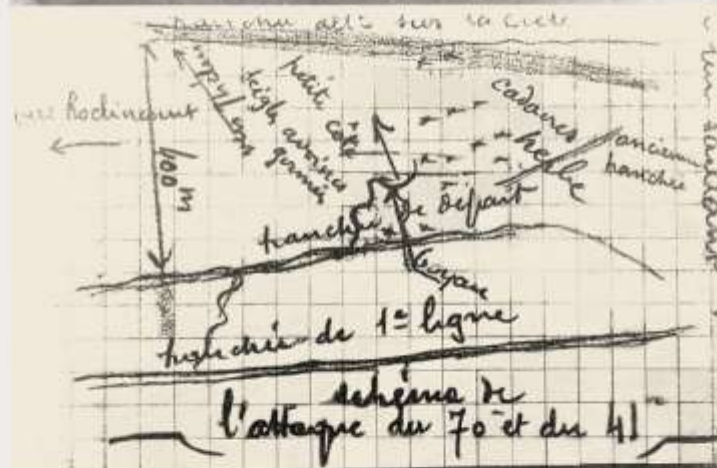 tranchée all. sur la crête
vers Roclincourt
400 m
seigle avoines
germés
petite
côte
cadavres
herbe
ancienne
tranchée
tranchée de départ
Boyau
tranchée de 1e ligne
schéma de
l'attaque du 70e et du 41